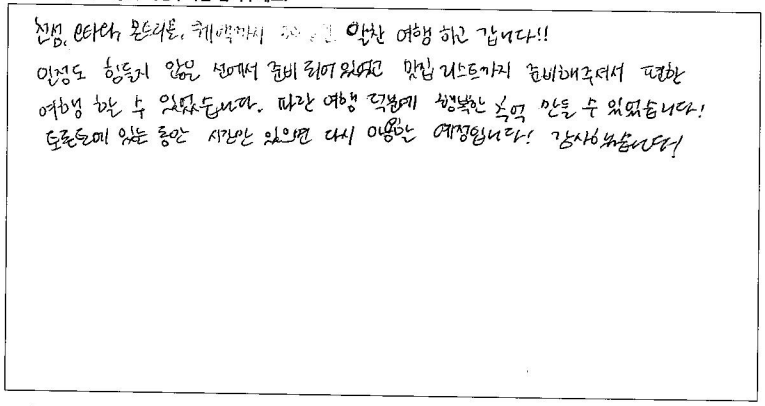 천섬, 오타와, 몬트리올, 퀘백까지 알찬 여행 하고 갑니다!!
일정도 힘들지 않은 선에서 준비 되어 있었고 맛집 리스트까지 준비해주셔서 편한
여행 할 수 있었습니다. 파란 여행 덕분에 행복한 추억 만들 수 있었습니다!
토론토에 있는 동안 시간만 있으면 다시 이용할 예정입니다! 감사했습니다!